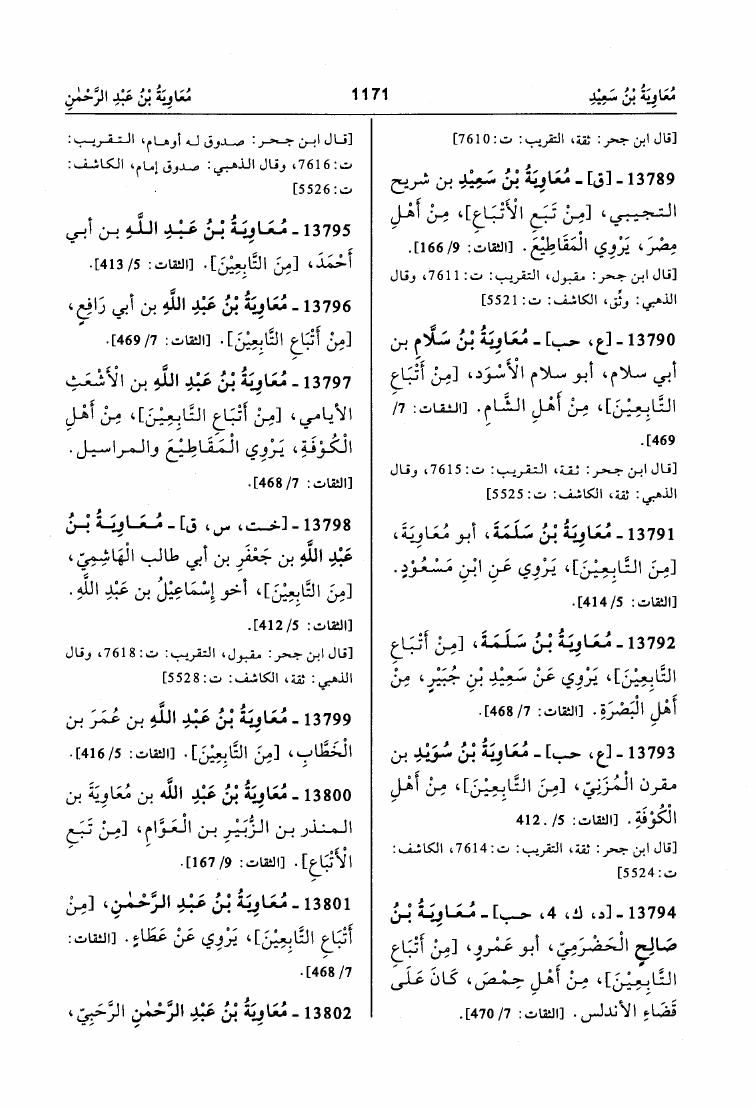 مُعَاوِيَةُ بْنُ سَعِيْدٍ 1171 مُعَاوِيَةُ بْنُ عَبْدِ الرَّحْمٰنِ
[قال ابن جحر: ثقة، التقريب: ت:7610]
13789 - [ق] - مُعَاوِيَةُ بْنُ سَعِيْدِ بن شريح
التجيبي، [مِنْ تَبَعِ الأَتْبَاعِ]، مِنْ أَهْلِ
مِصْرَ، يَرْوِي الْمَقَاطِيْعَ. [الثقات: 9/ 166].
[قال ابن جحر: مقبول، التقريب: ت:7611، وقال
الذهبي: وثق، الكاشف: ت:5521]
13790 - [ع، حب] - مُعَاوِيَةُ بْنُ سَلَّامِ بن
أبي سلام، أبو سلام الأَسْوَدِ، [مِنْ أَتْبَاعِ
التَّابِعِيْنَ]، مِنْ أَهْلِ الشَّامِ. [الثقات: 7/
469].
[قال ابن جحر: ثقة، التقريب: ت:7615، وقال
الذهبي: ثقة، الكاشف: ت:5525]
13791 - مُعَاوِيَةُ بْنُ سَلَمَةَ، أبو مُعَاوِيَةَ،
[مِنَ التَّابِعِيْنَ]، يَرْوِي عَنِ ابْنِ مَسْعُوْدٍ.
[الثقات: 5/ 414].
13792 - مُعَاوِيَةُ بْنُ سَلَمَةَ، [مِنْ أَتْبَاعِ
التَّابِعِيْنَ]، يَرْوِي عَنْ سَعِيْدِ بْنِ جُبَيْرٍ، مِنْ
أَهْلِ الْبَصْرَةِ. [الثقات: 7/ 468].
13793 - [ع، حب] - مُعَاوِيَةُ بْنُ سُوَيْدِ بن
مقرن الْمُزَنِيّ، [مِنَ التَّابِعِيْنَ]، مِنْ أَهْلِ
الْكُوْفَةِ. [الثقات: 5/ .412
[قال ابن جحر: ثقة، التقريب: ت:7614، الكاشف:
ت:5524]
13794 - [د، ك، 4، حب] - مُعَاوِيَةُ بْنُ
صَالِحِ الْحَضْرَمِيّ، أبو عَمْرٍو، [مِنْ أَتْبَاعِ
التَّابِعِيْنَ]، مِنْ أَهْلِ حِمْصَ، كَانَ عَلَى
قَضَاءِ الأندلس. [الثقات: 7/ 470].
[قال ابن جحر: صدوق له أوهام، التقريب:
ت:7616، وقال الذهبي: صدوق إمام، الكاشف:
ت:5526]
13795 - مُعَاوِيَةُ بْنُ عَبْدِ اللَّهِ بن أبي
أَحْمَدَ، [مِنَ التَّابِعِيْنَ]. [الثقات: 5/ 413].
13796 - مُعَاوِيَةُ بْنُ عَبْدِ اللَّهِ بن أبي رَافِعٍ،
[مِنْ أَتْبَاعِ التَّابِعِيْنَ]. [الثقات: 7/ 469].
13797 - مُعَاوِيَةُ بْنُ عَبْدِ اللَّهِ بن الأَشْعَثِ
الأيامي، [مِنْ أَتْبَاعِ التَّابِعِيْنَ]، مِنْ أَهْلِ
الْكُوْفَةِ، يَرْوِي الْمَقَاطِيْعَ والمراسيل.
[الثقات: 7/ 468].
13798 - [خت، س، ق] - مُعَاوِيَةُ بْنُ
عَبْدِ اللَّهِ بن جَعْفَرِ بن أبي طالب الْهَاشِمِيّ،
[مِنَ التَّابِعِيْنَ]، أخو إِسْمَاعِيْلُ بن عَبْدِ اللَّهِ.
[الثقات: 5/ 412].
[قال ابن جحر: مقبول، التقريب: ت:7618، وقال
الذهبي: ثقة، الكاشف: ت:5528]
13799 - مُعَاوِيَةُ بْنُ عَبْدِ اللَّهِ بن عُمَرَ بن
الْخَطَّابِ، [مِنَ التَّابِعِيْنَ]. [الثقات: 5/ 416].
13800 - مُعَاوِيَةُ بْنُ عَبْدِ اللَّه بن مُعَاوِيَةَ بن
المنذر بن الزُّبَيْرِ بن الْعَوَّامِ، [مِنْ تَبَعِ
الأَتْبَاعِ]. [الثقات: 9/ 167].
13801 - مُعَاوِيَةُ بْنُ عَبْدِ الرَّحْمٰنِ، [مِنْ
أَتْبَاعِ التَّابِعِيْنَ]، يَرْوِي عَنْ عَطَاءٍ. [الثقات:
7/ 468].
13802 - مُعَاوِيَةُ بْنُ عَبْدِ الرَّحْمٰنِ الرَّحَبِيّ،